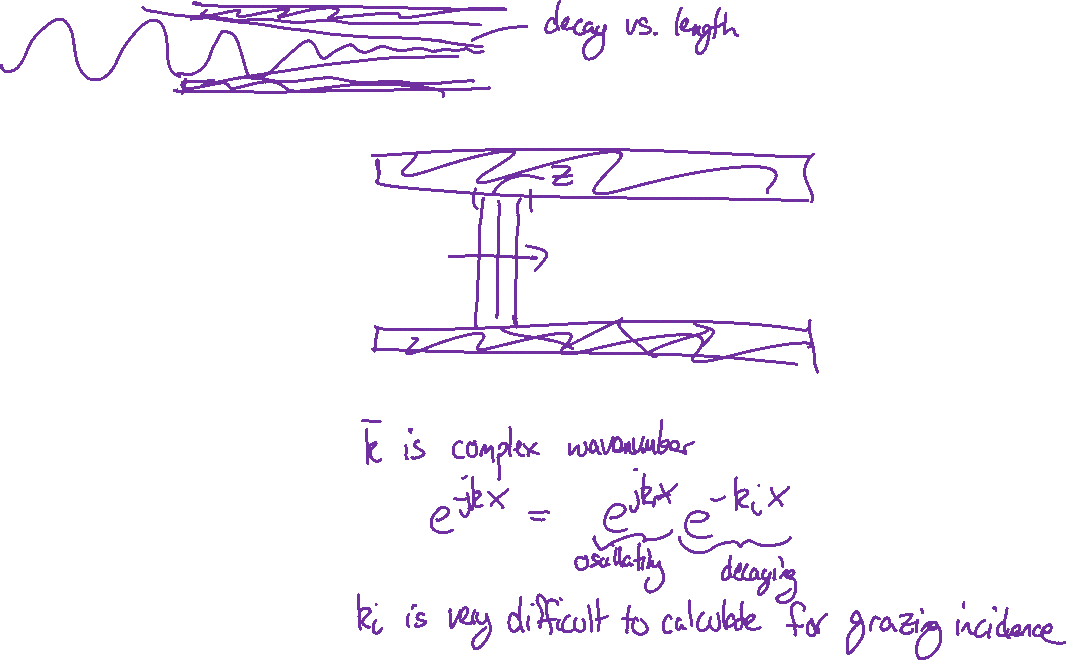 decay vs. length
z
k̄ is complex wavenumber
e^-jkx = e^jkx e^-kᵢx
oscillating decaying
kᵢ is very difficult to calculate for grazing incidence